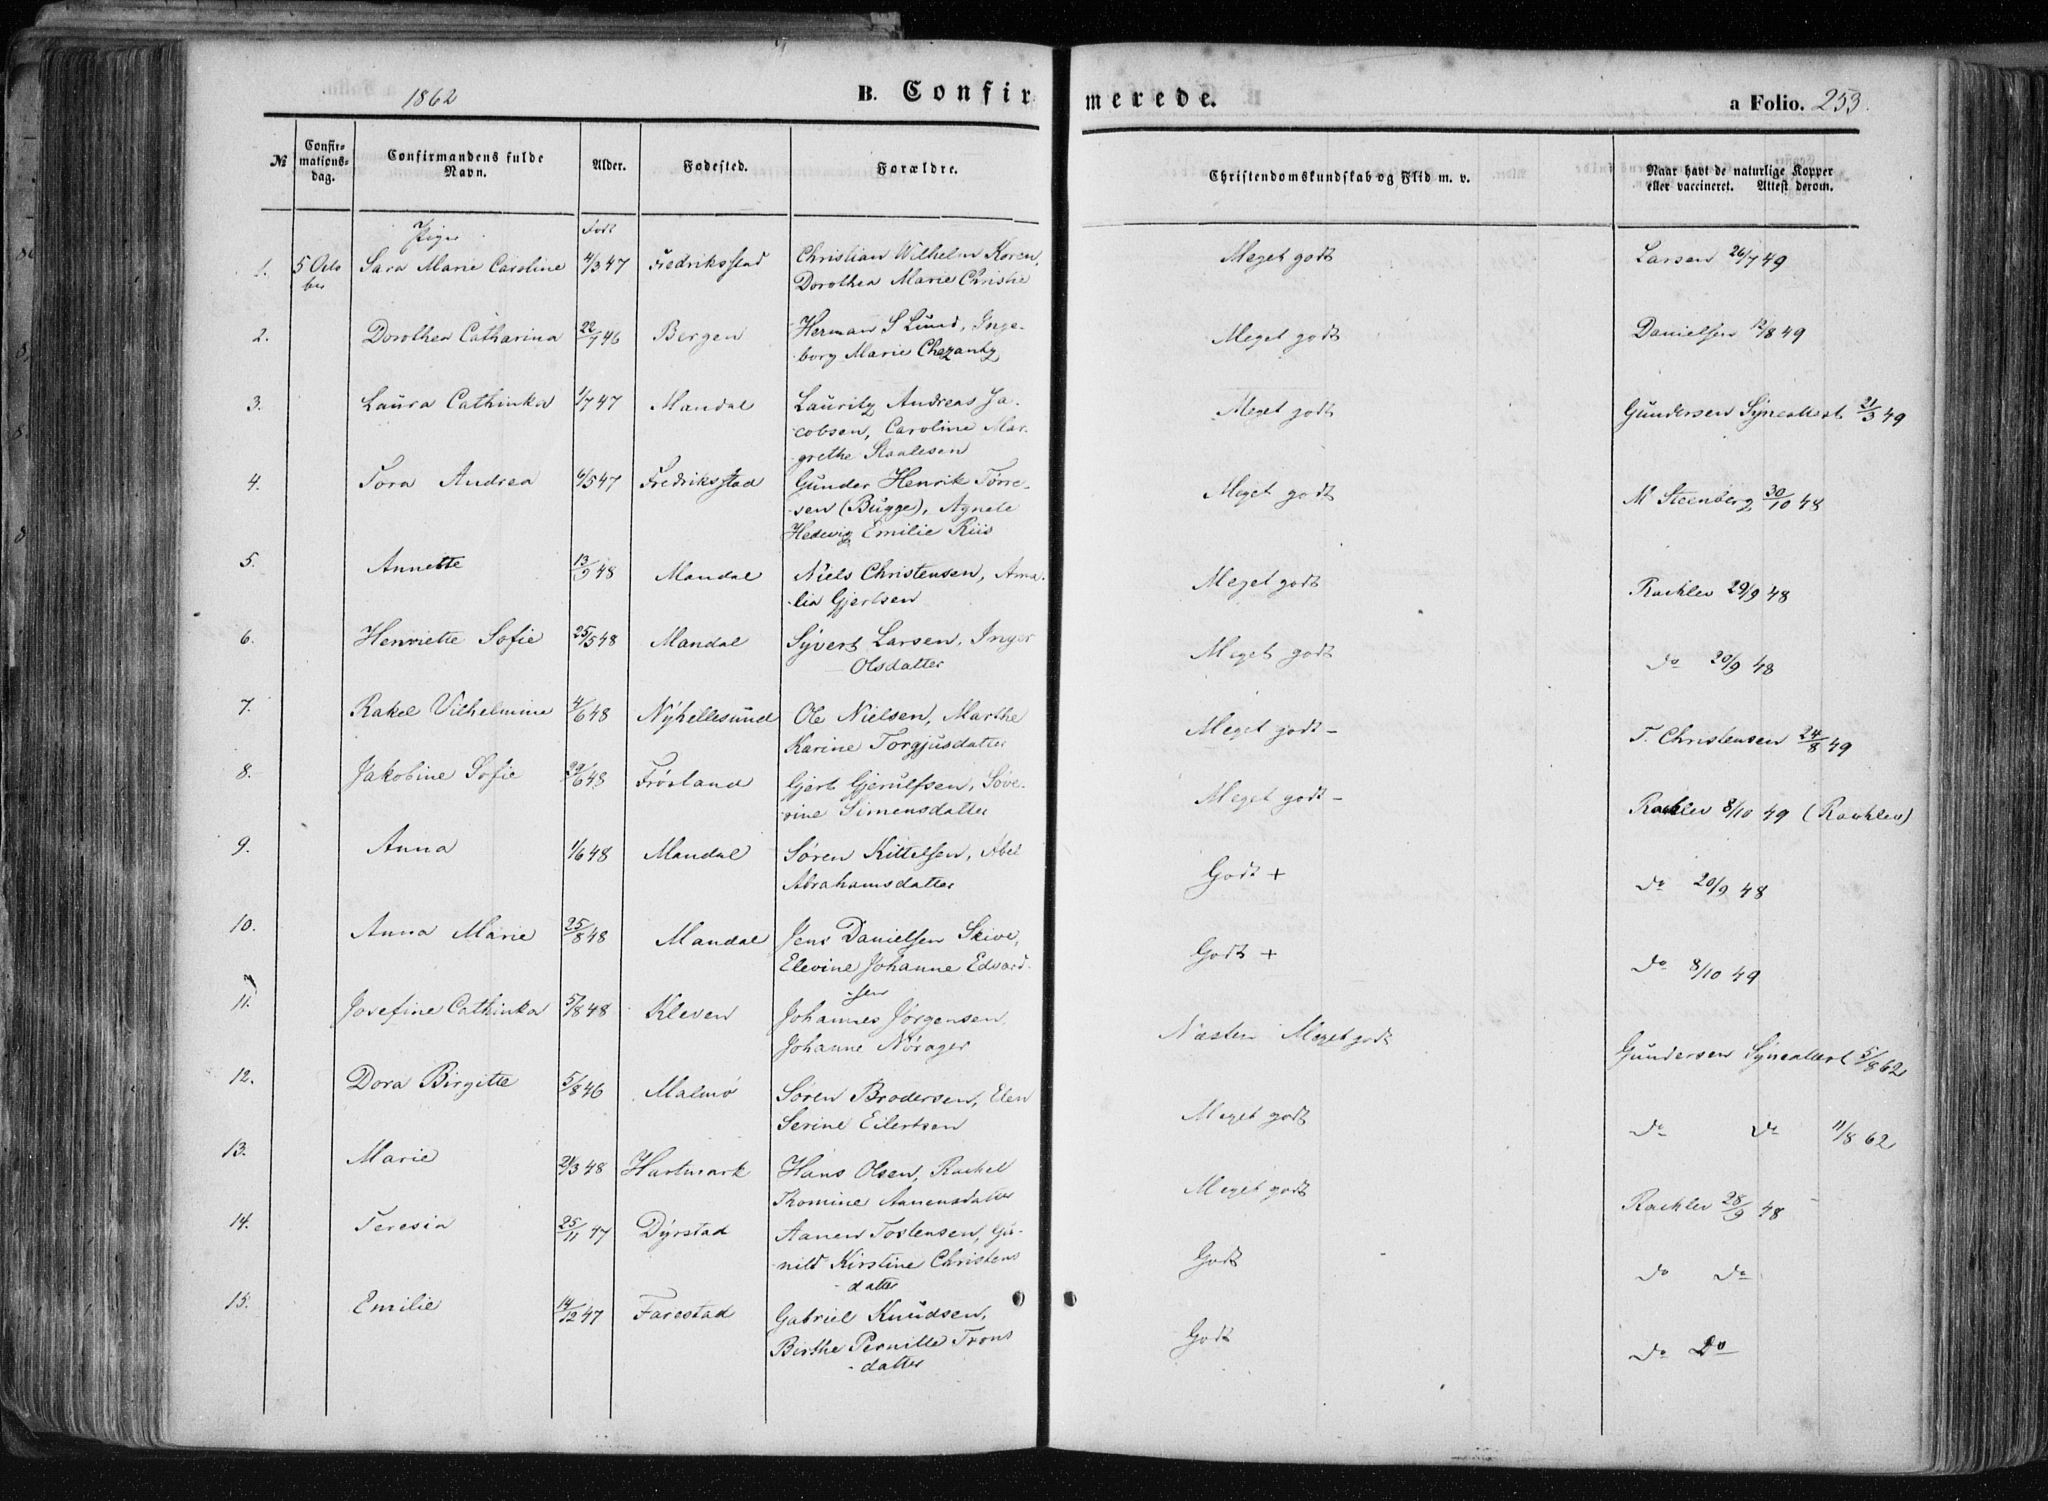 1862 B. Confirmerede. a Folio. 253.
№ Confirmationsdag. Confirmandens fulde Navn. Alder. Fødested. Forældre. Christendomskundskab og Flid m. v. Naar havt de naturlige Kopper eller vaccineret. Attest derom.
Piger Født
1. 5 Octo Sara Marie Caroline 4/3 47 Fredriksstad Christian Wilhelm Koren, Meget godt Larsen 26/7 49
ber Dorothea Marie Christie
2. Dorothea Catharina 22/7 46 Bergen Herman S Lund, Inge- Meget godt Danielsen 12/8 49
borg Marie Chezanky
3. Laura Cathinka 1/7 47 Mandal Lauritz Andreas Ja- Meget godt Gundersen Synealtert 21/3 49
cobsen, Caroline Mar-
grethe Staalesen
4. Tora Andrea 6/5 47 Fredriksstad Gunder Henrik Tørre- Meget godt M Steenberg 30/10 48
sen (Bugge), Agnete
Hedevig Emilie Riis
5. Annette 13/9 48 Mandal Niels Christensen, Ama- Meget godt Raehlev 29/9 48
lia Gjertsen
6. Henriette Sofie 25/5 48 Mandal Syvert Larsen, Inger Meget godt Do 20/9 48
Olsdatter
7. Rakel Vilhelmine 4/6 48 Nyhellesund Ole Nielsen, Marthe Meget godt- T. Christensen 24/8 49
Karine Torgjusdatter
8. Jakobine Sofie 29/6 48 Frøsland Gjert Gjerulfsen, Søve- Meget godt- Raehlev 8/10 49 (Raehlev)
rine Simensdatter
9. Anna 1/6 48 Mandal Søren Kittelsen, Abel Godt + Do 20/9 48
Abrahamsdatter
10. Anna Marie 25/8 48 Mandal Jens Danielsen Skive, Godt + Do 8/10 49
Elevine Johanne Edvard-
sen
11. Josefine Cathinka 5/8 48 Kleven Johannes Jørgensen, Næsten Meget godt Gundersen Synealtert 5/8 62
Johanne Nørager
12. Dora Birgitte 5/8 46 Malmø Søren Brodersen, Elen Meget godt Do Do 11/8 62
Serine Eilertsen
13. Marie 21/3 48 Hartmark Hans Olsen, Rachel Meget godt Raehlev 28/9 48
Thomine Aanensdatter
14. Teresia 25/11 47 Dyrstad Aanen Tostensen, Gu- Godt Do Do
nild Kirstine Christens
datter
15. Emilie 14/12 47 Farestad Gabriel Knudsen, Godt Do Do
Birthe Pernille Trons
datter